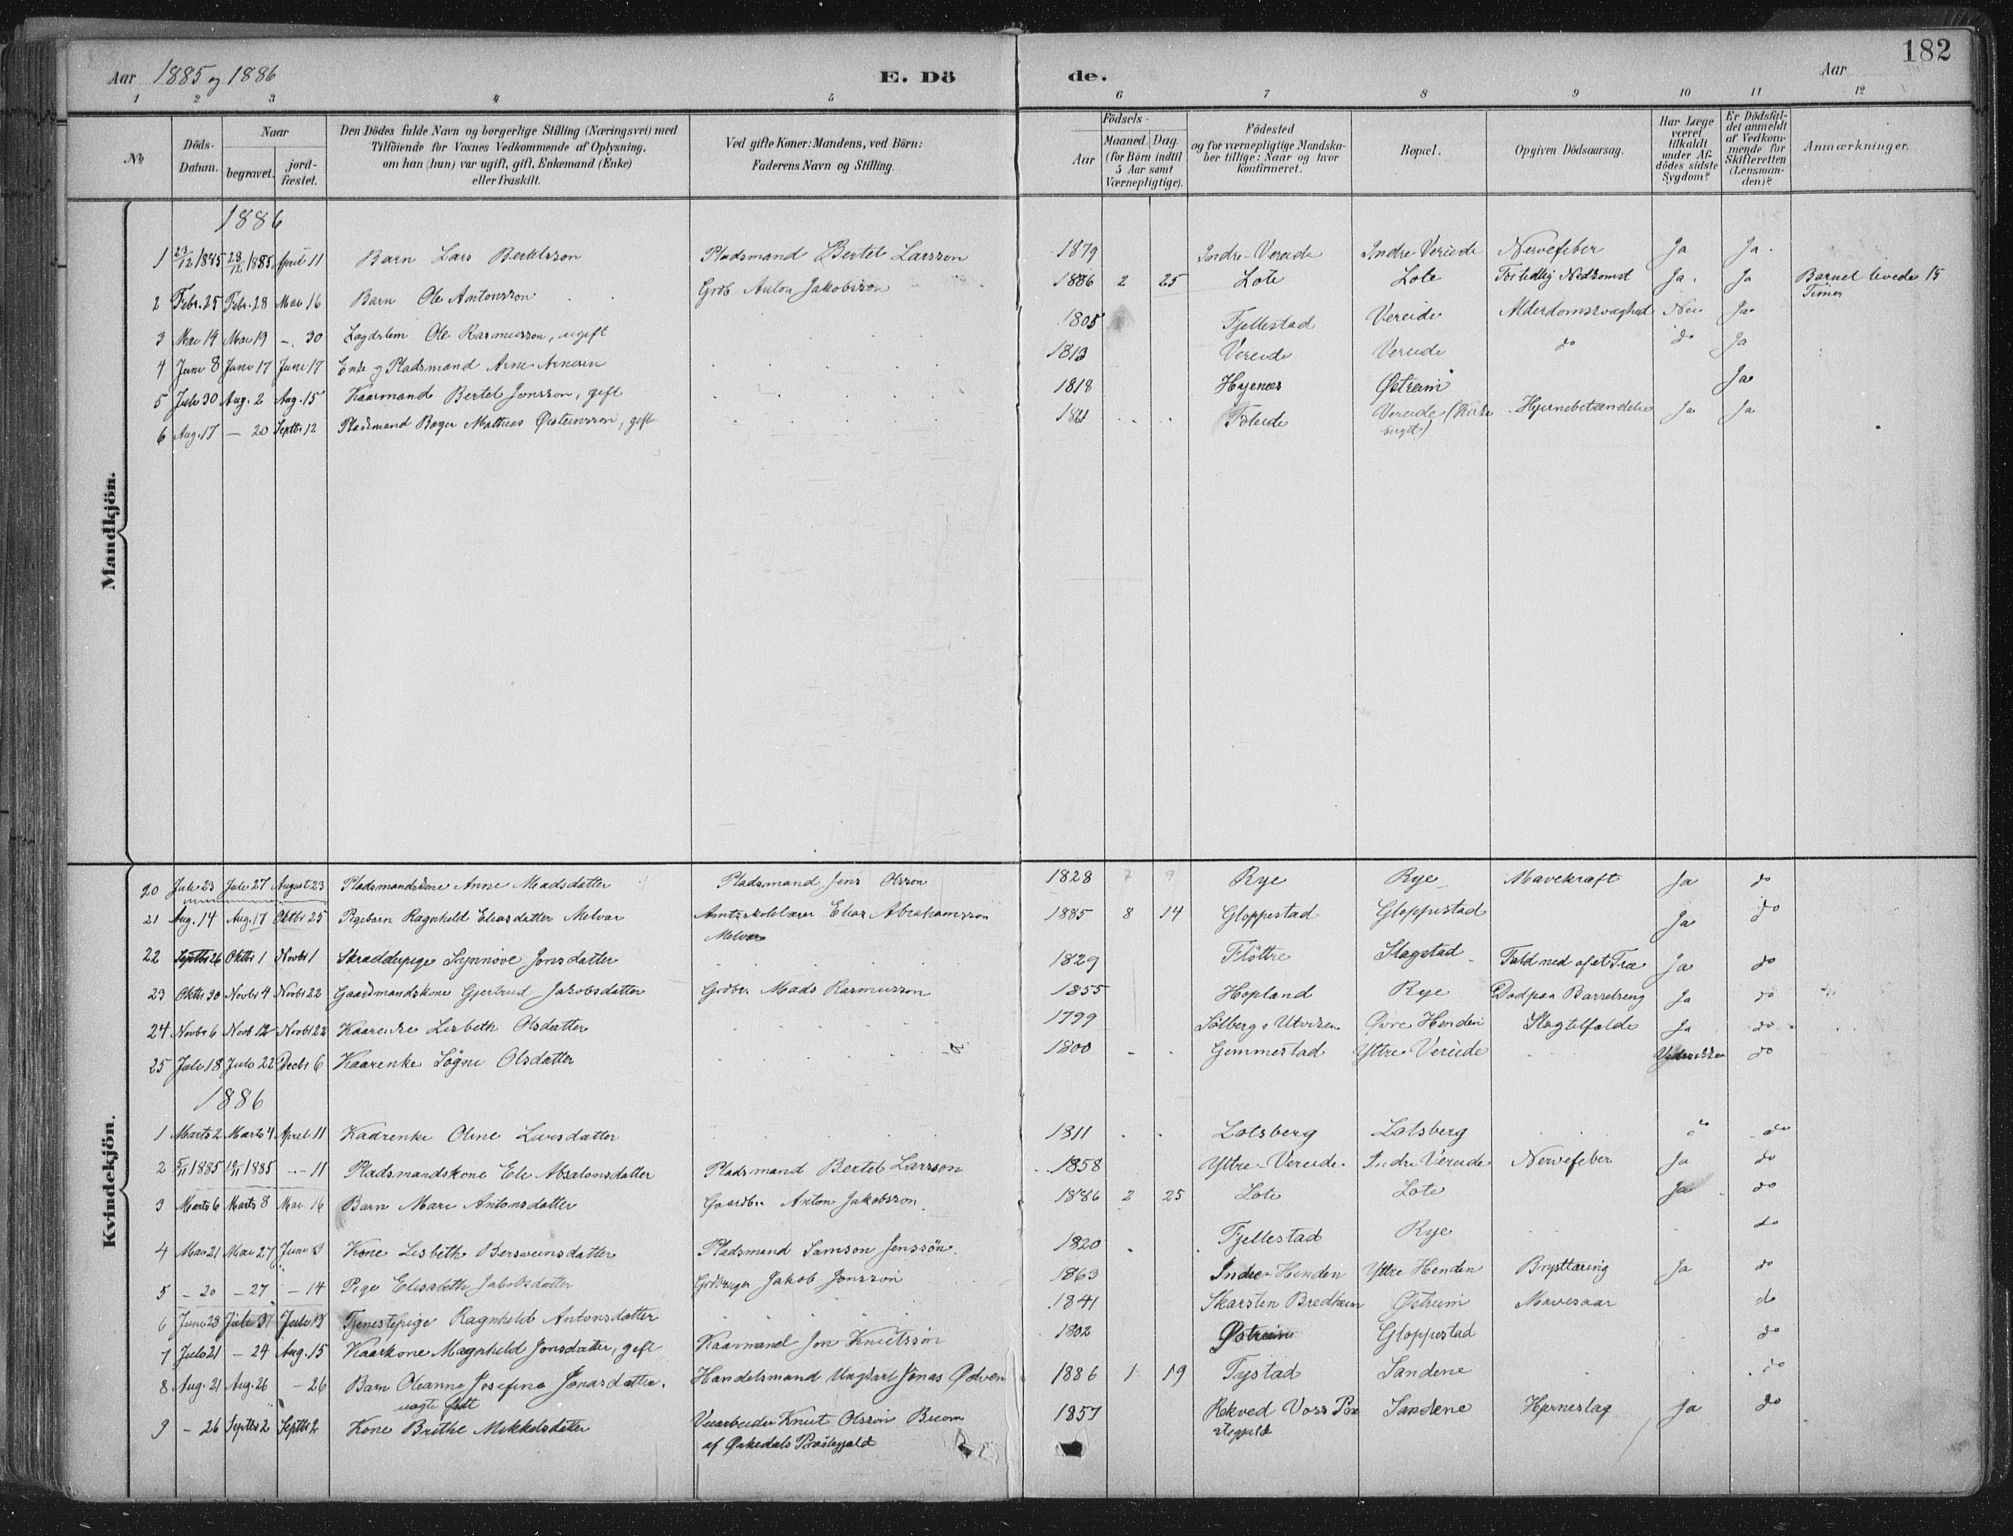 182
Aar 1885 og 1886 E. Dö de. Aar
1 2 3 4 5 6 7 8 9 10 11 12
No
Döds-Datum.
Naar
begravet.
jord-fæstet.
Den Dödes fulde Navn og borgerlige Stilling (Næringsvei) med
Tilföiende for Voxnes Vedkommende af Oplysning,
om han (hun) var ugift, gift, Enkemand (Enke)
eller fraskilt.
Ved gifte Koner: Mandens, ved Börn:
Faderens Navn og Stilling.
Födsels-
Aar
Maaned. Dag.
(for Börn indtil
5 Aar samt
Værnepligtige).
Födested
og for værnepligtige Mandska-
ber tillige: Naar og hvor
konfirmeret.
Bopæl.
Opgiven Dödsaarsag.
Har Læge
været
tilkaldt
under Af-
dödes sidste
Sygdom?
Er Dödsfal-
det anmeldt
af Vedkom-
mende for
Skifteretten
(Lensman-
den)?
Anmærkninger.
Mandkjön.
1886
1 23/12 1885 28/12 1885 April 11 Barn Lars Bertelsson Pladsmand Bertel Larsson 1879 Indre Vereide Indre Vereide Nervefeber Ja Ja.
2 Febr. 25 Febr. 28 Mai 16 Barn Ole Antonsson Grdb Anton Jakobsson 1886 2 25 Lote Lote For tidlig Nedkomst Ja. Ja Barnet levede 15
Timer
3 Mai 14 Mai 19 -. 30 Lægdslem Ole Rasmusson, ugift 1805 Fjellestad Vereide Alderdomssvaghed Nei Ja
4 Juni 8 Juni 17 Juni 17 Enke og Pladsmand Arne Arnesen 1813 Vereide Vereide do do Ja
5 Juli 30 Aug. 2 Aug. 15 Kaarmand Bertel Jonsson, gift 1818 Hyenæs Østreim Ja
6 Aug. 17 - 20 Septbr 12 Pladsmand Roger Mathias Øisteinsson, gift Vereide Hjernebetændelse Ja Ja
Kvindekjön.
20 Juli 23 Juli 27 August 23 Pladsmandskone Anne Madsdatter Pladsmand Jens Olsson 1828 7 9 Rye Rye Mavekræft Ja do
21 Aug. 14 Aug. 17 Oktbr 25 Pigebarn Ragnhild Eliasdatter Melvær Amtsskolelærer Elias Abrahamsson
Melvær 1885 8 14 Gloppestad Gloppestad Ja do
22 Septbr 26 Oktbr 1 Novbr 1 Skrædderpige Synnöve Jonsdatter 1829 Fløttre Slagstad Fald ned af et Træ Ja do
23 Oktbr 30 Novbr 4 Novbr 22 Gaardmandskone Gjertrud Jakobsdatter Grdbr. Mads Rasmusson 1855 Hopland Rye Död paa Barselseng Ja do
24 Novbr 6 Novb 12 Novbr 22 Kaarenke Lisbeth Olsdatter 1799 Sølberg i Utviken Øvre Henden Slagtilfælde Ja do
25 Juli 18 Julo 22 Decbr 6 Kaarenke Søgni Olsdatter 1800 Gemmestad Yttre Vereide do
1886
1 Marts 2 Marts 4 April 11 Kaarenke Oline Larsdatter 1811 Lotsberg Lotsberg do
2 1885 1885 - 11 Pladsmandskone Eli Absalonsdatter Pladsmand Bertel Larsson 1858 Yttre Vereide Indre Vereide Nervefeber Ja do
3 Marts 6 Marts 8 Mai 16 Barn Mari Antonsdatter Gaardbr Anton Jakobsson 1886 2 25 Lote Lote Ja do
4 Mai 21 Mai 27 Juni 3 Kone Lisbeth Bersveinsdatter Pladsmand Samson Jenssön 1820 Fjellestad Rye do
5 - 20 - 27 - 14 Pige Elisabeth Jakobsdatter Grdbruger Jakob Jonsson 1863 Indre Henden Yttre Henden Brysttæring Ja do
6 Juni 28 Juli 31 Juli 13 Tjenestepige Ragnhild Antonsdatter 1841 Skarsten Bredheim Østreim Mavesaar do
7 Julo 21 - 24 Aug. 15 Kaarkone Magnhild Jonsdatter, gift Kaarmand Jon Knutssön 1802 Østreim Gloppestad do
8 Aug. 21 Aug. 26 - 26 Barn Oleanna Josefina Jonasdatter. Handelsmand Ungkarl Jonas Ødven 1886 1 19 Tystad Sandene do
uægte født
9 - 26 Septbr 2 Septbr 2 Kone Brithe Mikkelsdatter Veiarbeider Knut Olsson Breom
af Ørkedals Præstegjeld 1857 Rekved Voss Præ
stegjeld Sandene Hjerneslag Ja do